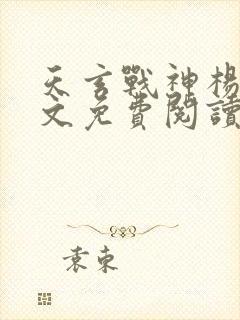 天玄戰神楊
文免費閱讀
袁東